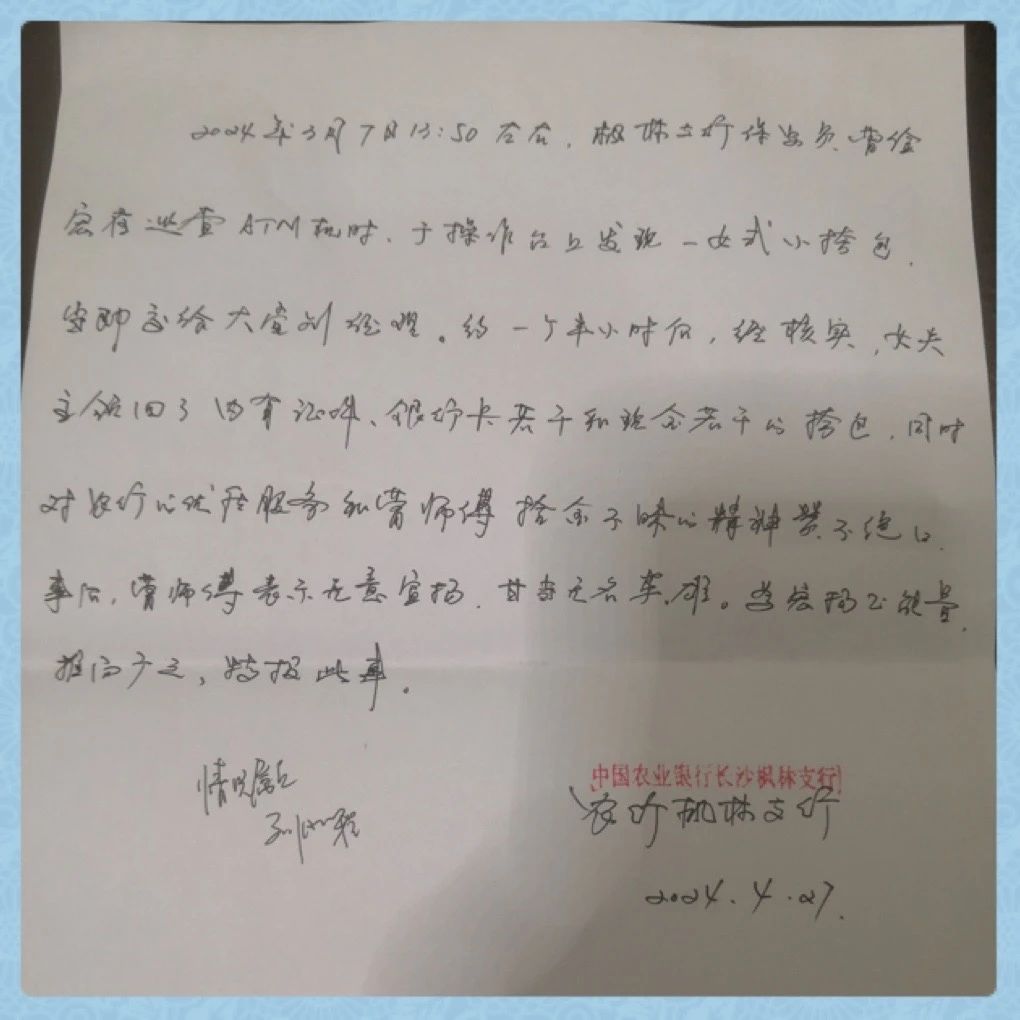 2024年3月7日13:50左右，枫林支行保安员曹
在巡查ATM机时、于操作台上发现一女式小挎包，
当即交给大堂刘经理。约一个半小时后，经核实，女失
主领回了内有证件、银行卡若干和现金若干的挎包，同时
对农行的优质服务和曹师傅拾金不昧的精神赞不绝口，
事后，曹师傅表示无意宣扬，甘当无名英雄。为宏扬正能量，
特报此事。
情况属实
中国农业银行长沙枫林支行
农行枫林支行
2024.4.27.